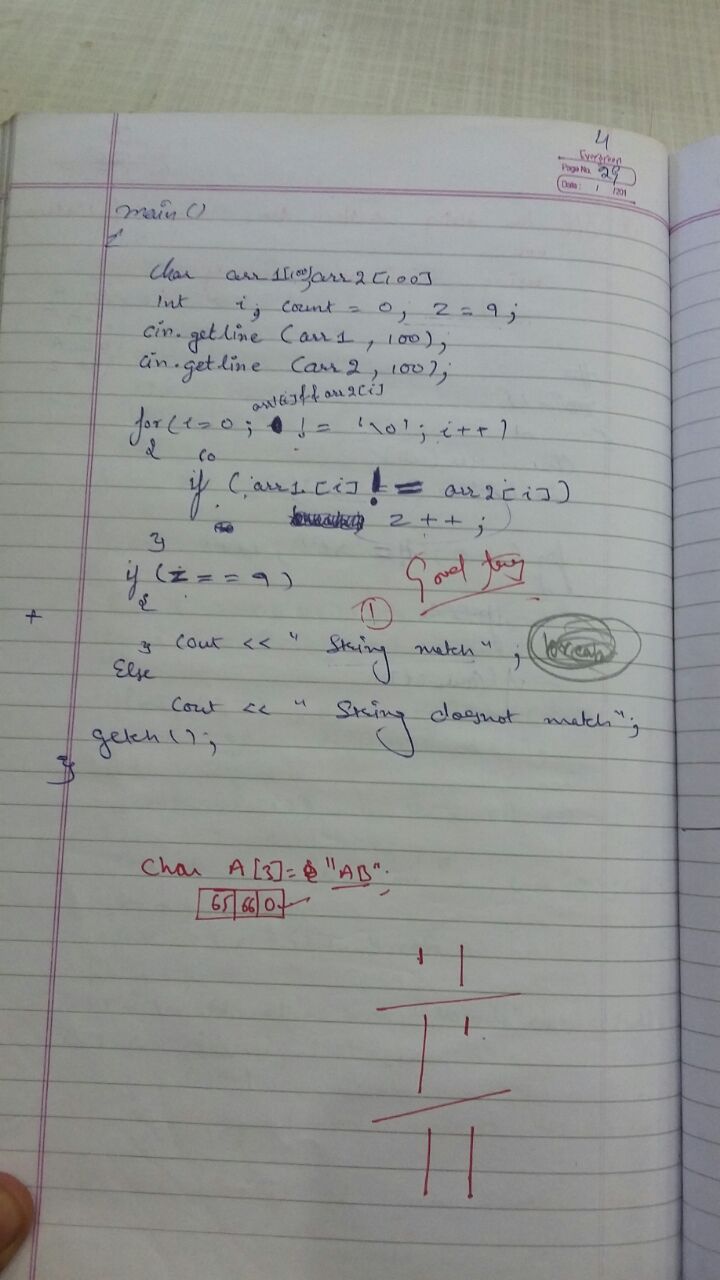 4
Evergreen
Page No. 29
Date: / /201
main()
{
char arr1[100],arr2[100]
int i, count = 0, z = 9;
cin.getline (arr1, 100);
cin.getline (arr2, 100);
arr1[i]&& arr2[i]
for(i=0; != '\0'; i++)
{
if (arr1[i] != arr2[i])
z++;
}
if (z == 9)
{
Good try
1
} cout << " String match" ;
Else
cout << " String doesnot match";
getch();
}
Char A[3]= "AB".
65 66 0